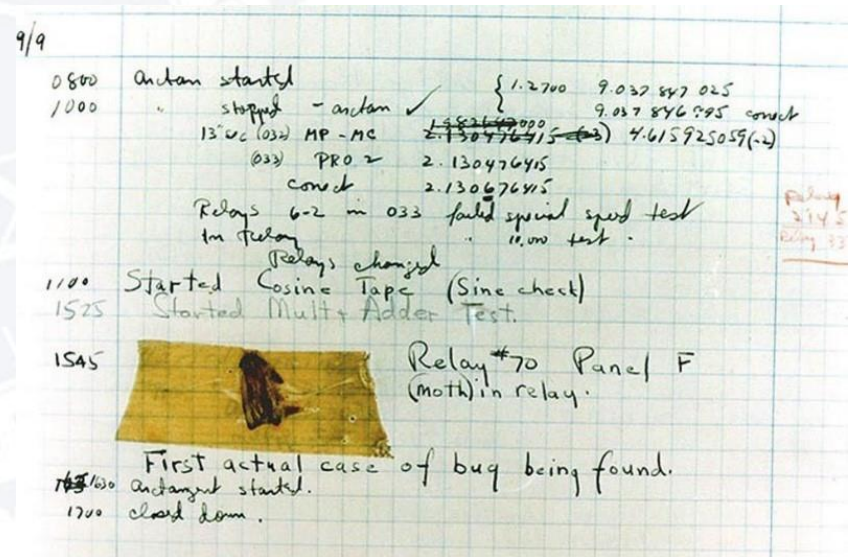 9/9
0800 Antan started { 1.2700 9.037 847 025
1000 " stopped - antan ✓ 9.037 846 995 conect
13"uc (032) MP - MC 2.130476415 (-3) 4.615925059(-2)
(033) PRO 2 2.130476415
conect 2.130676415
Relays 6-2 in 033 failed special speed test
In Relay " 10,000 test .
Relays changed
1100 Started Cosine Tape (Sine check)
1525 Started Mult + Adder Test.
1545 Relay #70 Panel F
(moth) in relay.
First actual case of bug being found.
1630 antangent started.
1700 closed down .
Relay
2145
Relay 33